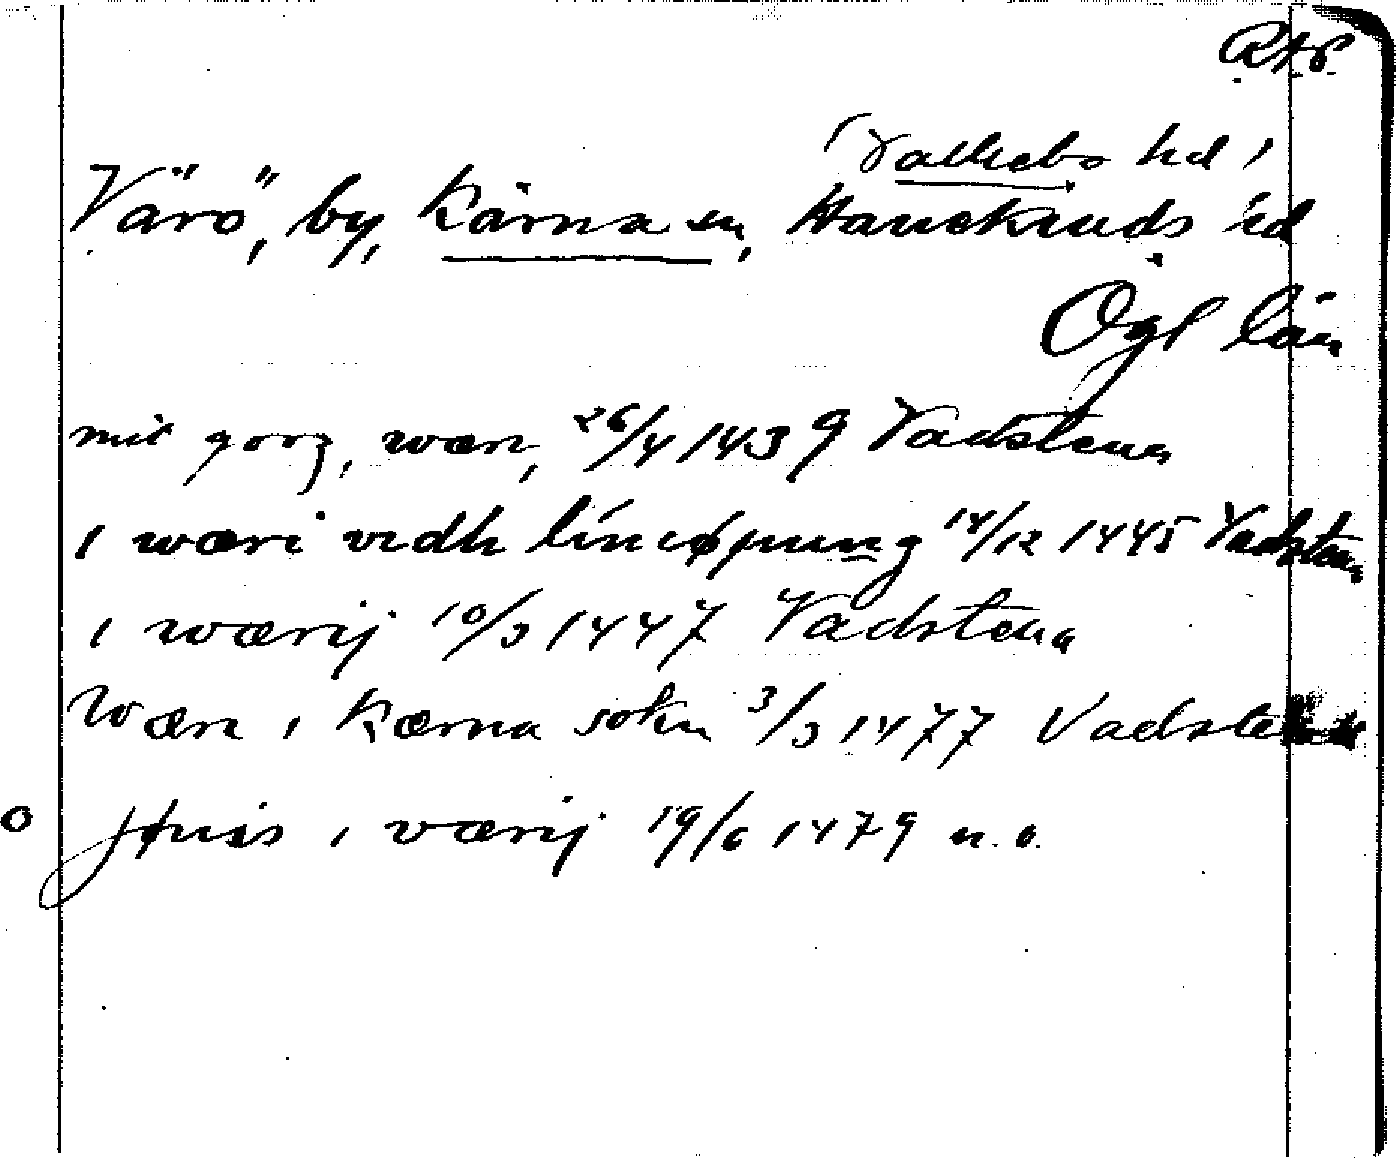 RAP.
(Valkebo hd)
Värö, by, Kärna sn, Hanekinds hd
Ögl län
mit gorz, wæri, 26/4 1439 Vadstena
i wæri vidh lincøpung 14/12 1445 Vadstena
i wærij 10/3 1447 Vadstena
Wæri i Kærna sokn 3/3 1477 Vadstena
o Huis i værij 19/6 1479 u.o.